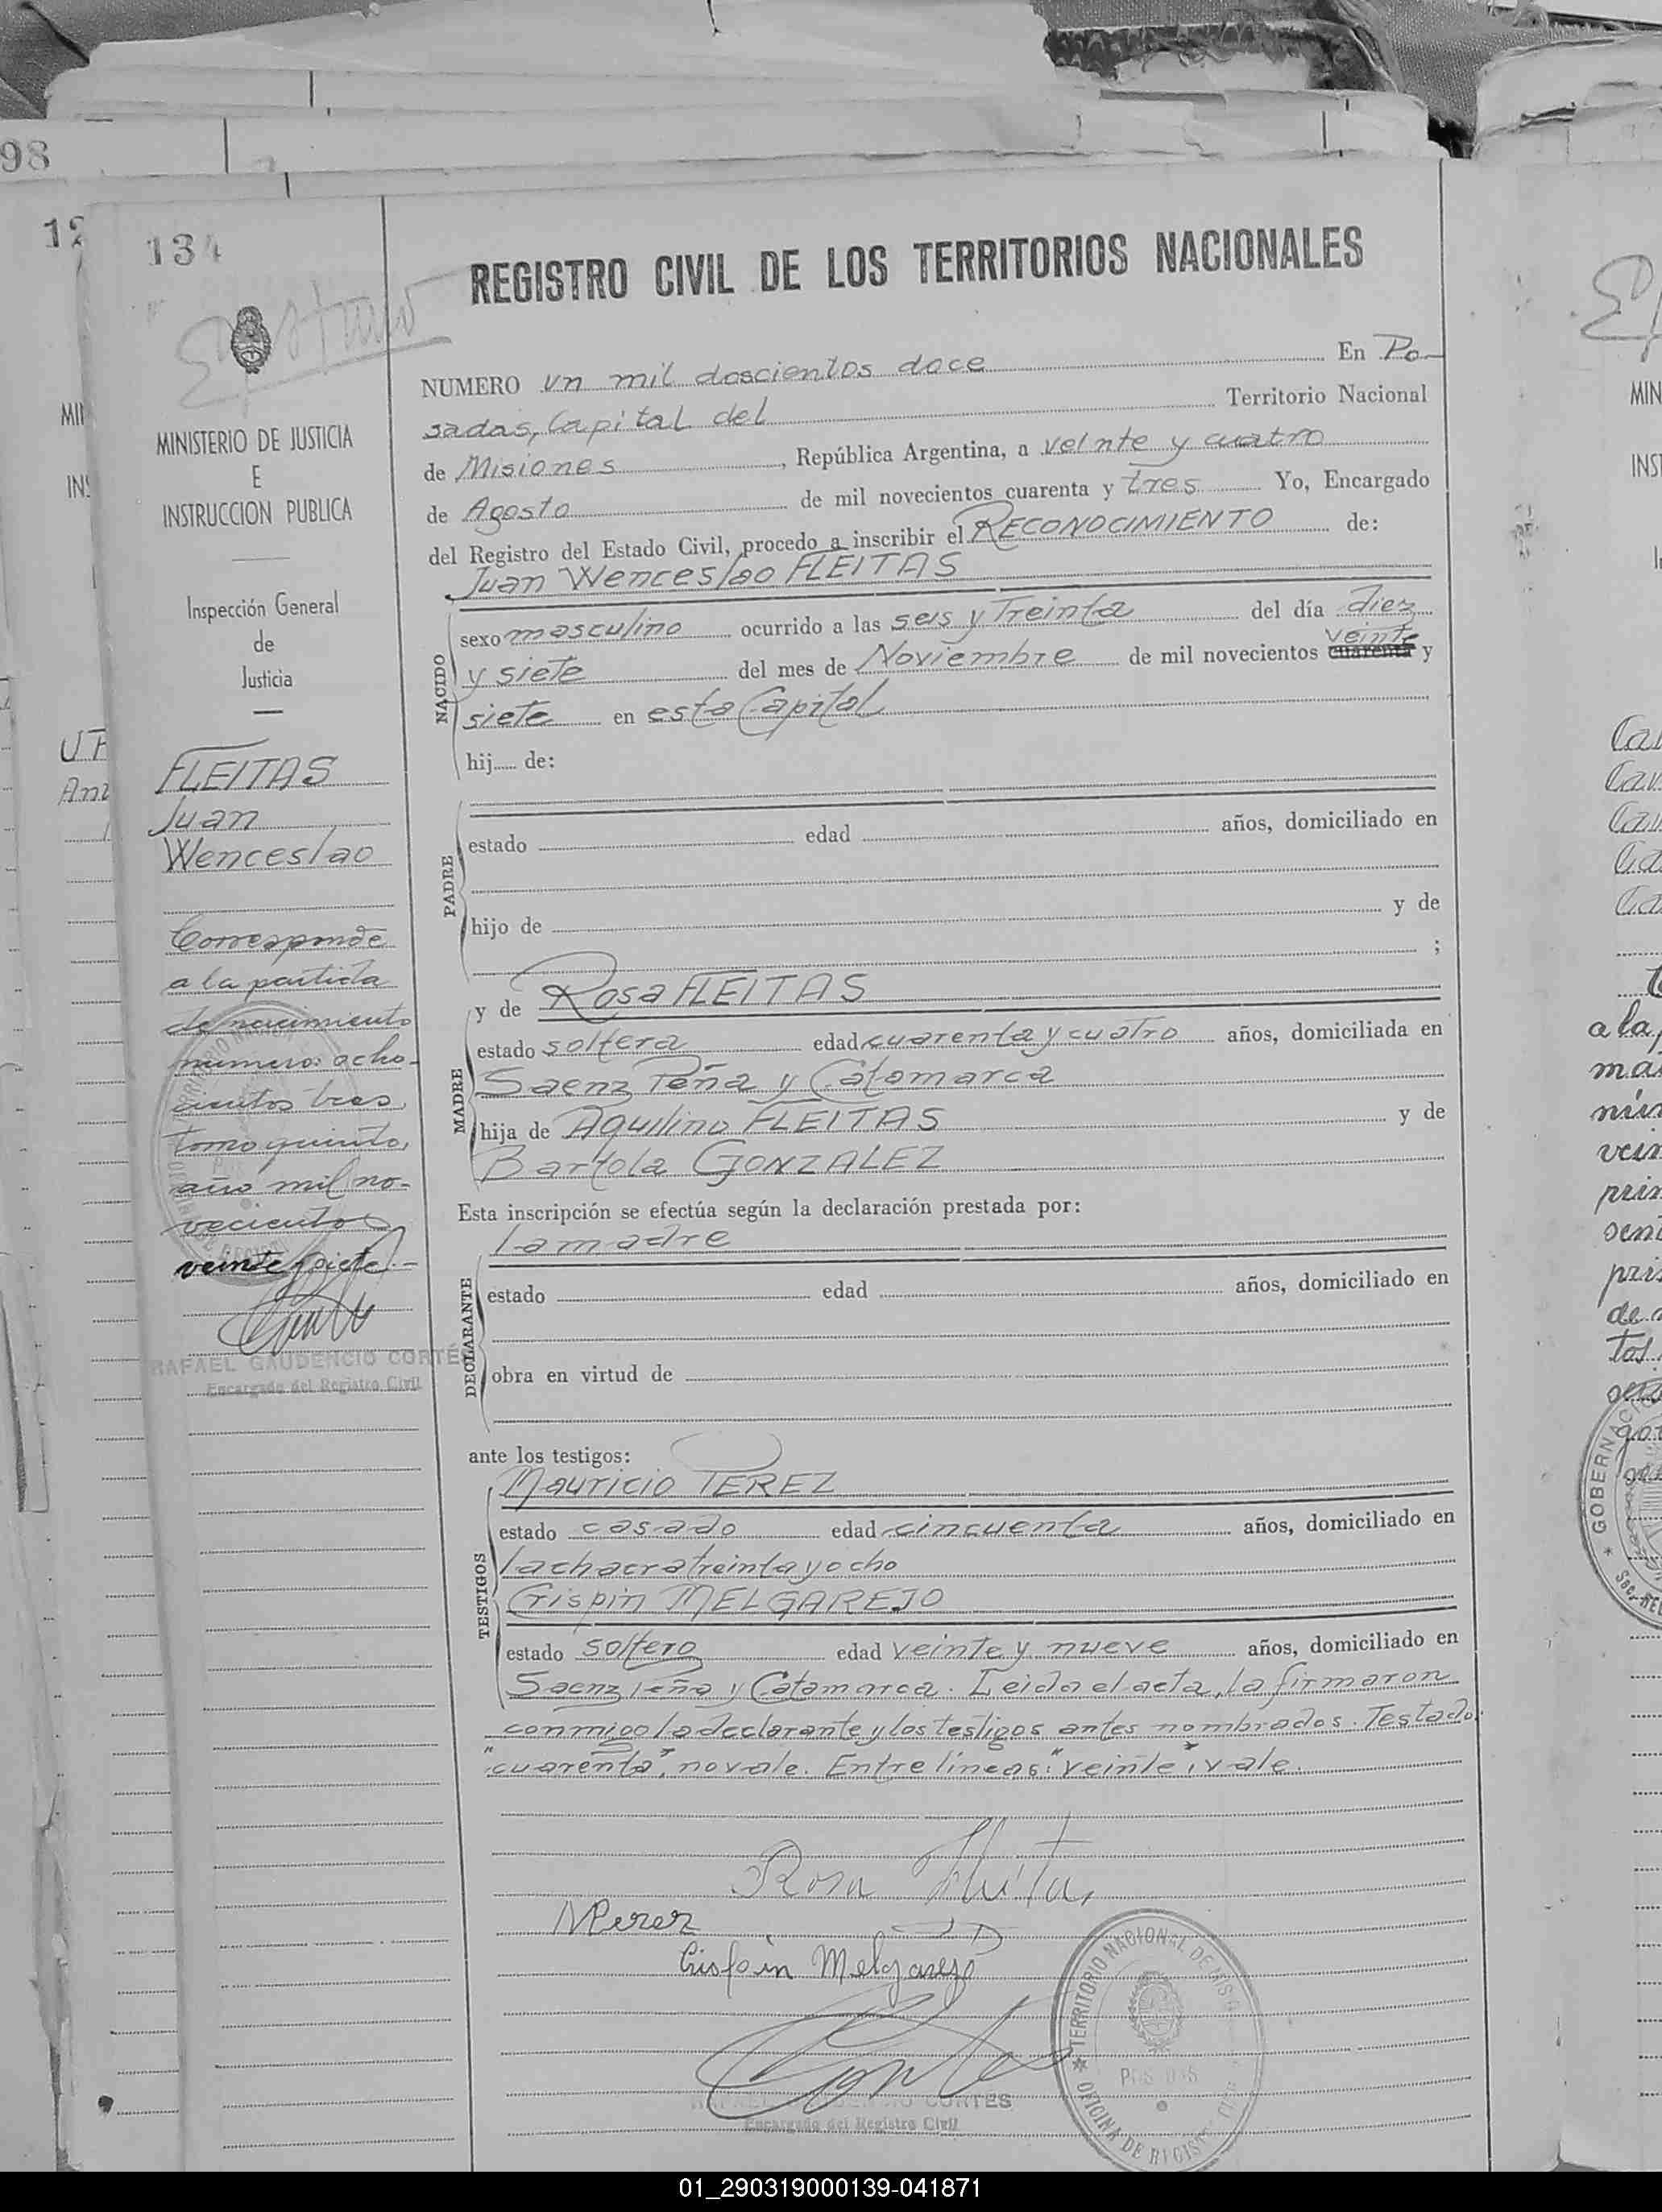 98
134
Epstuvo
REGISTRO CIVIL DE LOS TERRITORIOS NACIONALES
MINISTERIO DE JUSTICIA
E
INSTRUCCION PUBLICA
Inspección General
de
Justicia
FLEITAS
Juan
Wenceslao
Corresponde
a la partida
de nacimiento
número: ocho-
cientos tres,
tomo quinto,
año mil no-
vecientos
veinte siete.-
RAFAEL GAUDENCIO CORTÉS
Encargado del Registro Civil
NUMERO un mil doscientos doce En Po-
sadas, Capital del Territorio Nacional
de Misiones, República Argentina, a veinte y cuatro
de Agosto de mil novecientos cuarenta y tres Yo, Encargado
del Registro del Estado Civil, procedo a inscribir el RECONOCIMIENTO de:
Juan Wenceslao FLEITAS
NACIDO
sexo masculino ocurrido a las seis y Treinta del día diez
veinte
y siete del mes de Noviembre de mil novecientos cuarenta y
siete en esta Capital
hij de:
PADRE
estado edad años, domiciliado en
hijo de y de
;
y de Rosa FLEITAS
MADRE
estado soltera edad cuarenta y cuatro años, domiciliada en
Saenz Peña y Catamarca
hija de Aquilino FLEITAS y de
Bartola GONZALEZ
Esta inscripción se efectúa según la declaración prestada por:
la madre
DECLARANTE
estado edad años, domiciliado en
obra en virtud de
ante los testigos:
Mauricio PEREZ
TESTIGOS
estado casado edad cincuenta años, domiciliado en
la chacra treinta y ocho
Crispin MELGAREJO
estado soltero edad veinte y nueve años, domiciliado en
Saenz Peña y Catamarca. Leida el acta, la firmaron
conmigo la declarante y los testigos antes nombrados. Testado:
"cuarenta", no vale. Entre líneas: "veinte", vale.
Rosa Fleitas
MPerez
Crispin Melgarejo
RAFAEL GAUDENCIO CORTES
Encargado del Registro Civil
TERRITORIO NACIONAL DE MISIONES
POSADAS
OFICINA DE REGISTRO CIVIL
01_290319000139-041871